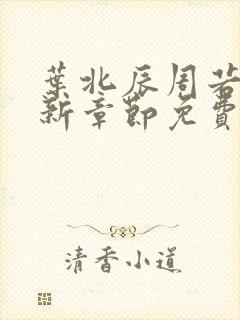 葉北辰周若
新章節免費
清香小道